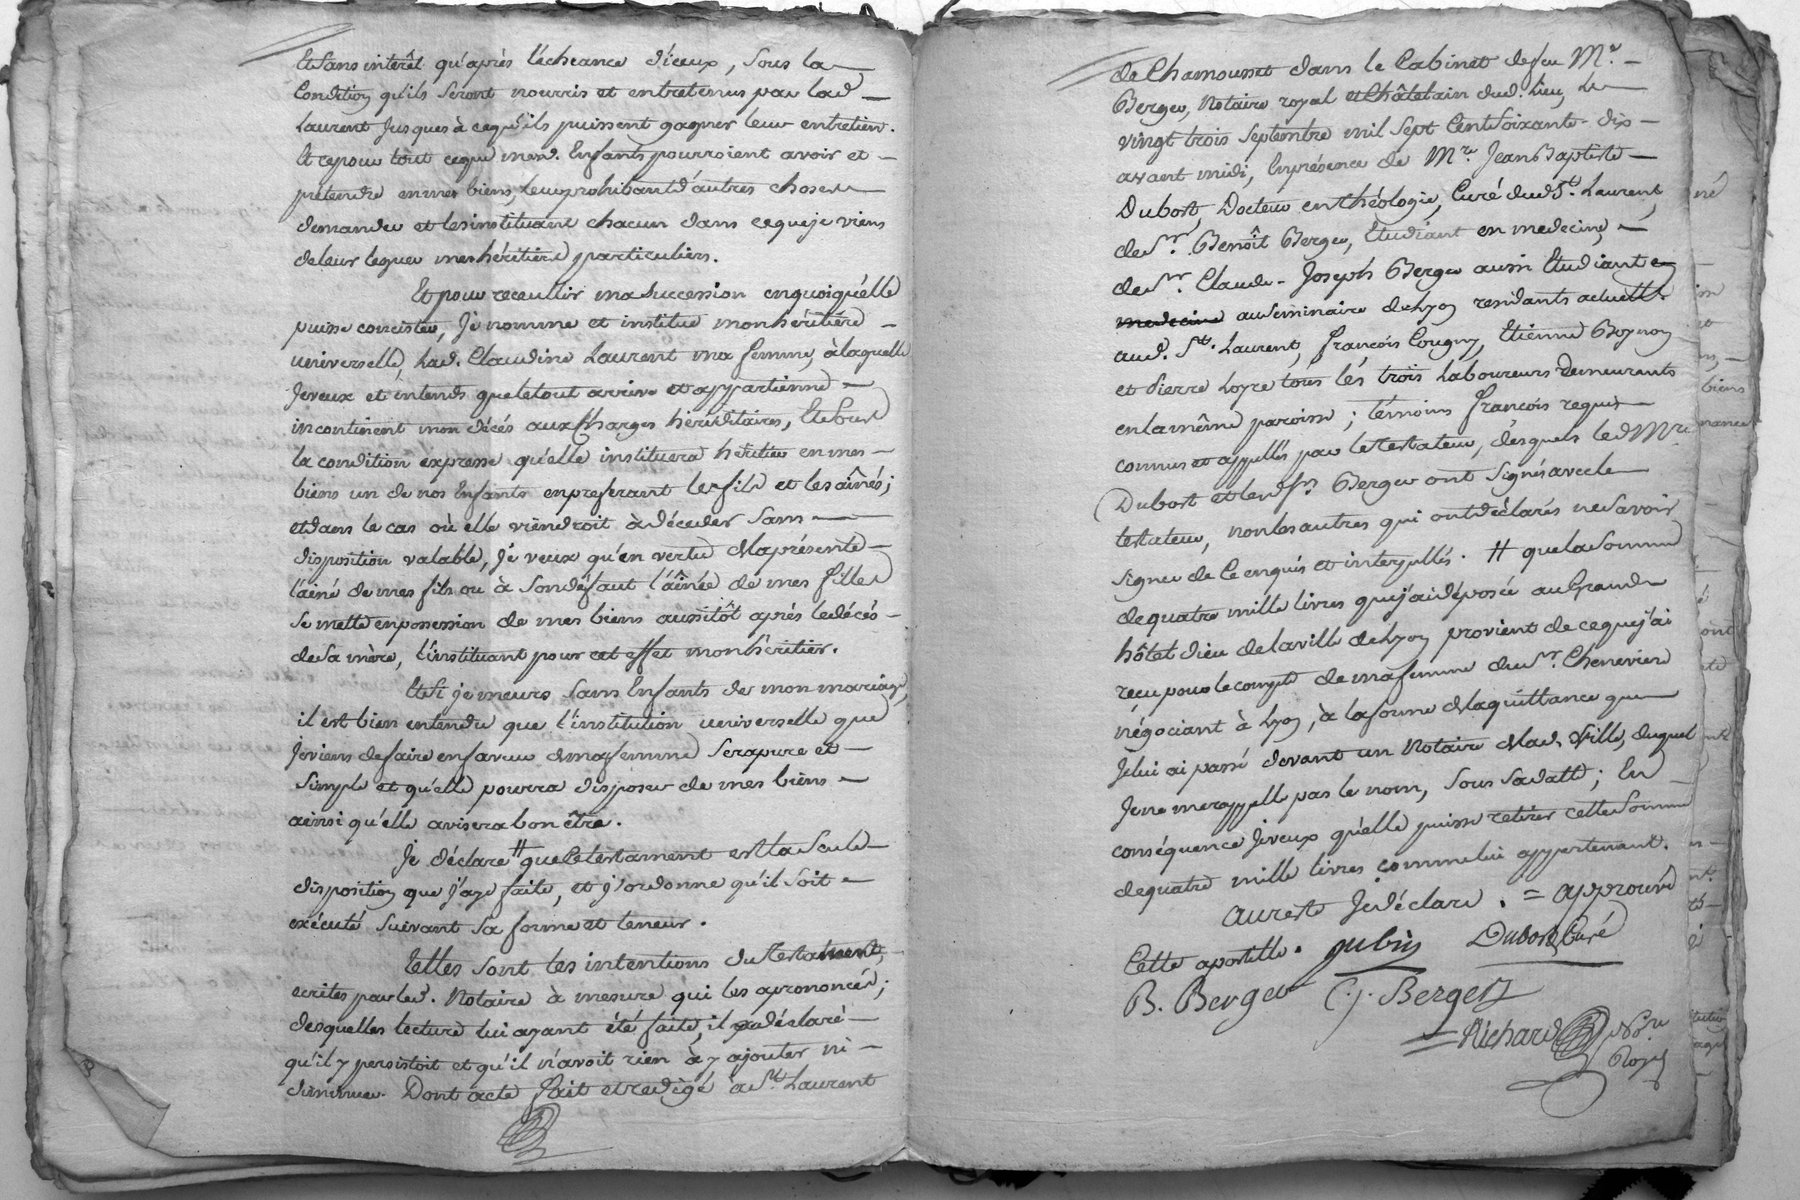 et sans intérêt qu'après l'écheance d'iceux, sous la
condition qu'ils seront nourris et entretenus par lad.
Laurent jusques à ce qu'ils puissent gagner leur entretien.
Et ce pour tout ce que mesd. Enfants pourroient avoir et
prétendre en mes biens, leur prohibant d'autres choses
demander et les instituant chacun dans ce que je viens
de leur leguer mes héritiers particuliers.
Et pour receullir ma succession en quoi qu'elle
puisse concister, Je nomme et institue mon héritière
universelle, Lad. Claudine Laurent ma femme, à laquelle
Je veux et intends que le tout arrive et appartienne
incontinent mon décés aux Charges héréditaires, Et sous
la condition expresse qu'elle instituera héritier en mes
biens un de nos Enfants en preferant les fils et les aînés;
et dans le cas où elle viendroit à décéder sans
disposition valable, Je veux qu'en vertu de la présente
l'ainé de mes fils ou à son défaut l'aînée de mes filles
se mette en possession de mes biens aussitôt après le décés
de sa mère, l'instituant pour cet effet mon héritier.
Et si je meurs sans Enfants de mon mariage,
il est bien entendu que l'institution universelle que
Je viens de faire en faveur de ma femme sera pure et
simple et qu'elle pourra disposer de mes biens
ainsi qu'elle avisera bon être.
Je déclare # que ce testament est la seule
disposition que j'aye faite, et j'ordonne qu'il soit
exécuté suivant sa forme et teneur.
Telles sont les intentions du Testament,
ecrites par led. Notaire à mesure qu'il les a prononcés;
desquelles lecture lui ayant été faite, il a déclaré
qu'il y persistoit et qu'il n'avoit rien à y ajouter ni
diminuer. Dont acte fait et redigé à St. Laurent
de Chamousset dans le Cabinet de feu Me.
Berger, Notaire royal et Châtelain dud. Lieu, Le
vingt trois septembre mil sept Cent soixante-dix
avant midi, En présence de Mre. Jean Baptiste
Dubost, Docteur en théologie, Curé dud. St. Laurent,
de Sr. Benoît Berger, Etudiant en medecine,
de Sr. Claude-Joseph Berger aussi Etudiant en
medecine au seminaire de Lyon residants actuellt.
aud. St. Laurent, François Cougny, Etienne Boynon
et Pierre Loyre tous les trois Laboureurs Demeurants
en la même paroisse; témoins François requis
connus et appellés par le testateur, desquels led. Mre.
Dubost et lesd. Srs Berger ont signés avec le
testateur, non les autres qui ont déclarés ne savoir
signer de ce enquis et interpellés. # que la somme
de quatre mille livres que j'ai déposée au Grand
hôtel dieu de la ville de Lyon provient de ce que j'ai
reçu pour le compte de ma femme du Sr. Chenevier
négociant à Lyon, à la forme de la quittance que
Je lui ai passé devant un Notaire de lad. Ville, duquel
Je ne me rappelle pas le nom, sous sa datte; En
conséquence Je veux qu'elle puisse retirer cette somme
de quatre mille livres comme lui appartenant.
au reste Je déclare. = approuvé
Cette apostille. Dubost, Curé
B. Berger C. J. Berger
Richard Nore
Royal